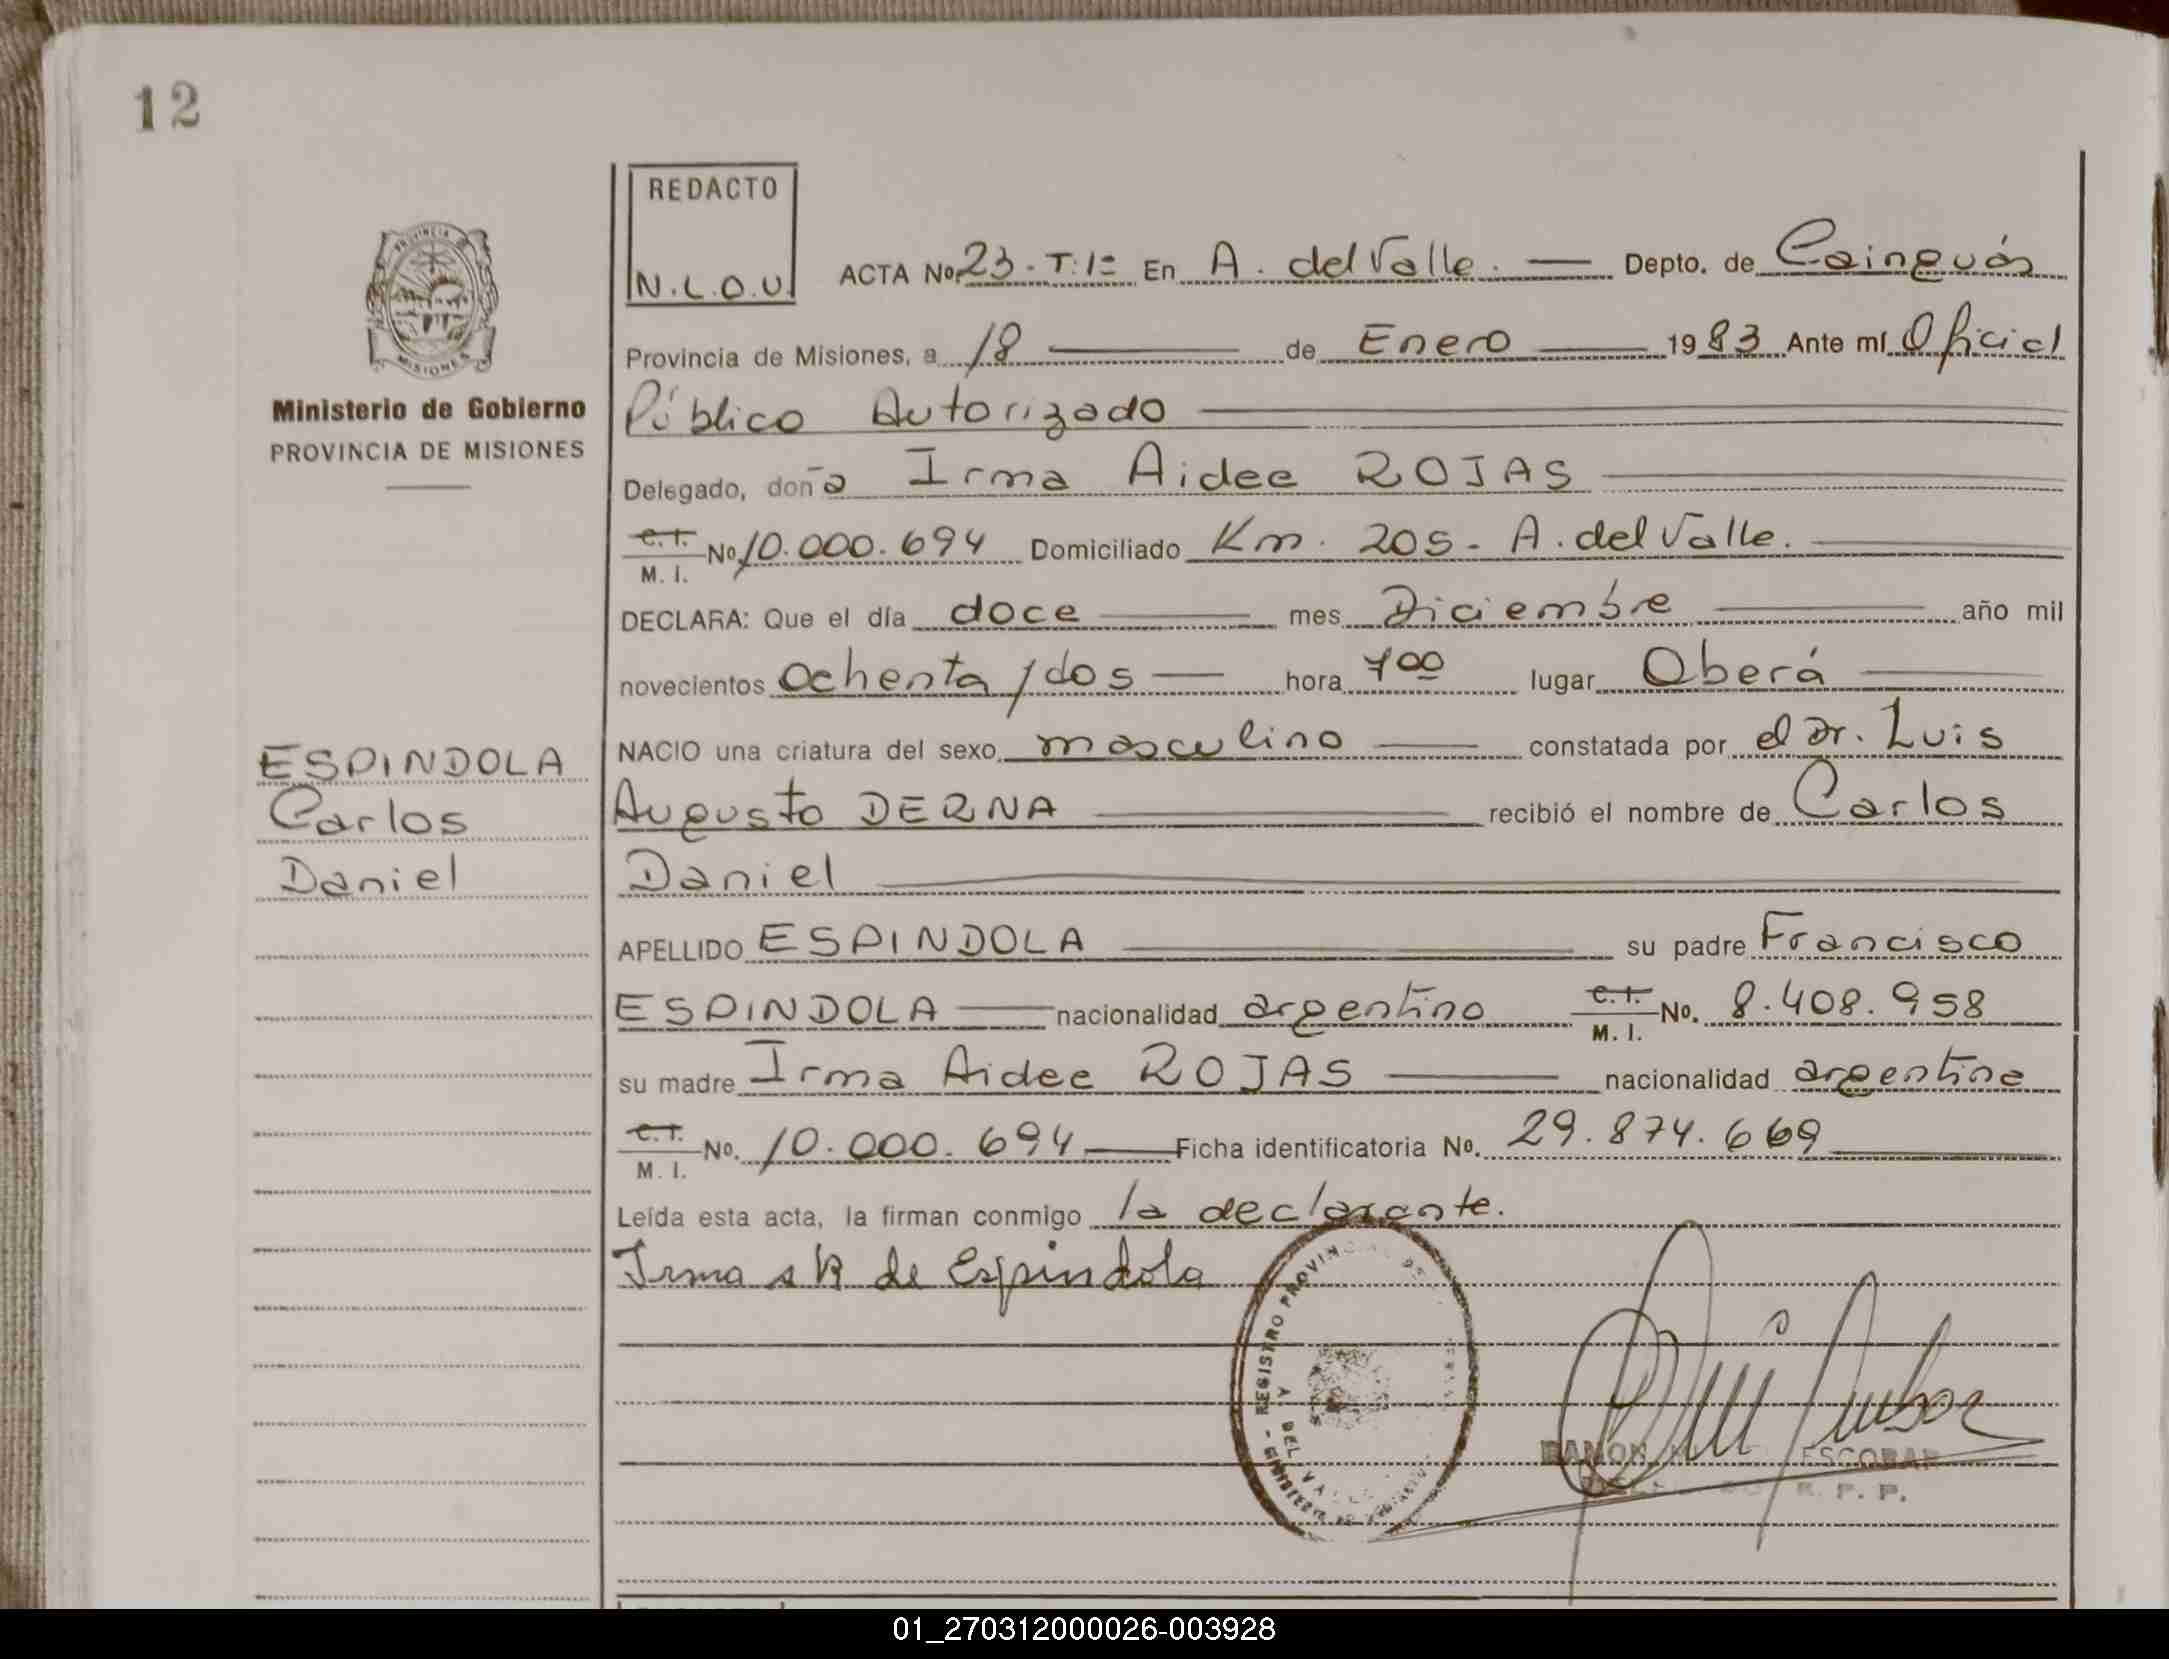 12
REDACTO
N.L.O.U.
ACTA No. 23. T: 1º En A. del Valle. Depto. de Cainguás
Provincia de Misiones, a 18 de Enero 1983 Ante mí Oficial
Ministerio de Gobierno
Público Autorizado
PROVINCIA DE MISIONES
Delegado, doña Irma Aidee ROJAS
C.I. M. I. No. 10.000.694 Domiciliado Km. 205- A. del Valle.
DECLARA: Que el día doce mes Diciembre año mil
novecientos ochenta/dos hora 700 lugar Oberá
NACIO una criatura del sexo masculino constatada por el Dr. Luis
ESPINDOLA
Augusto DERNA recibió el nombre de Carlos
Carlos
Daniel
Daniel
APELLIDO ESPINDOLA su padre Francisco
ESPINDOLA nacionalidad argentino C.I. M. I. No. 8.408.958
su madre Irma Aidee ROJAS nacionalidad argentina
C.I. M. I. No. 10.000.694 Ficha identificatoria No. 29.874.669
Leída esta acta, la firman conmigo la declarante.
Irma A R de Espindola
REGISTRO PROVINCIAL DE
DEL VALLE
RAMON ESCOBAR
R. P. P.
01_270312000026-003928